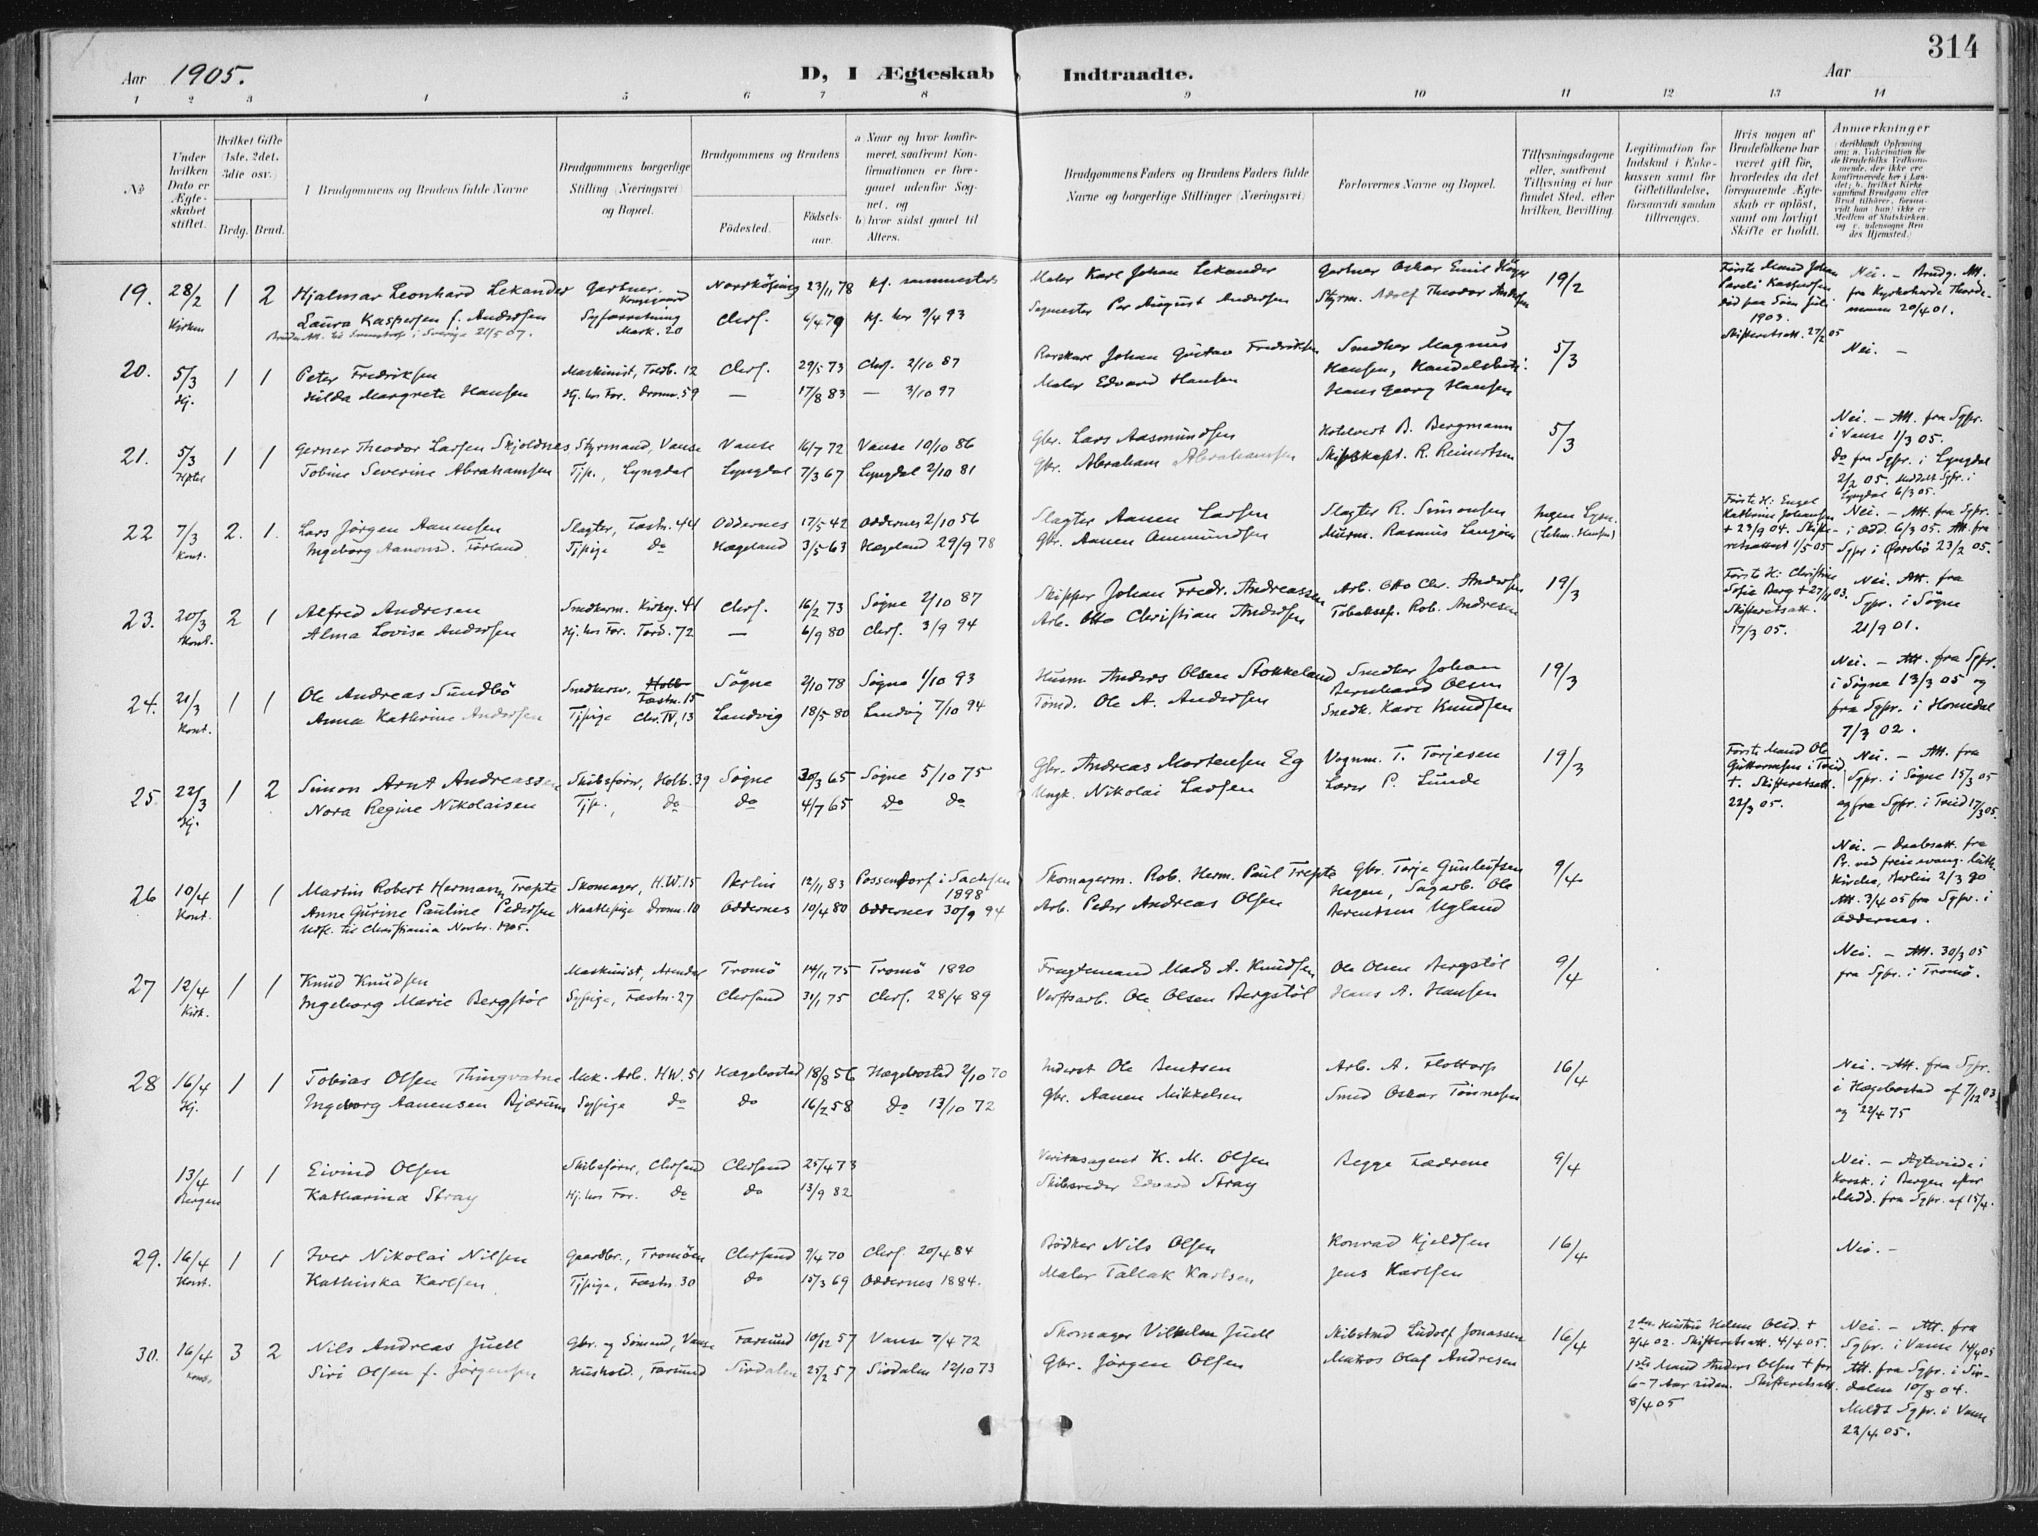 314
Aar 1905. D, I Ægteskab Indtraadte. Aar
1 2 3 4 5 6 7 8 9 10 11 12 13 14
No
Under hvilken Dato er Ægteskabet stiftet.
Hvilket Gifte (1ste, 2det, 3die osv.)
Brdg. Brud.
Brudgommens og Brudens fulde Navne
Brudgommens borgerlige Stilling (Næringsvei) og Bopæl.
Brudgommens og Brudens
Födested. Födsels-aar.
a) Naar og hvor konfirmeret, saafremt Konfirmationen er foregaaet udenfor Sognet, og b) hvor sidst gaaet til Alters.
Brudgommens Faders og Brudens Faders fulde Navne og borgerlige Stillinger (Næringsvei)
Forlovernes Navne og Bopæl.
Tillysningsdagene eller, saafremt Tillysning ei har fundet Sted, efter hvilken Bevilling.
Legitimation for Indskud i Enkekassen samt for Giftetilladelse, forsaavidt saadan tiltrænges.
Hvis nogen af Brudefolkene har været gift før, hvorledes da det foregaaende Ægteskab er opløst, samt om lovligt Skifte er holdt.
Anmærkninger
19. 28/2 Kirken 1 2 Hjalmar Leonhard Lekander Gartner, Kongsgaard Norrköping 23/11 78 kf. sammesteds Maler Karl Johan Lekander Gartner Oskar Emil 19/2 Første Mand Johan Kaspersen død paa Søen Juli 1903. Skifteretsatt. 27/2 05 Nei. – Brudg. Att. fra Kyrkoherde 20/4 01.
Laura Kaspersen f. Andersen Syforretning Mark. 20 Chrs. 6/4 79 kf. her 9/4 93 Per August Andersen Styrm. Adolf Theodor Andersen
20. 5/3 Hj. 1 1 Peter Fredriksen Maskinist, Tordb. 12 Chrs. 29/5 73 Chrs. 2/10 87 Johan Gustav Fredriksen Snedker Magnus Hansen, 5/3 Nei. –
Hilda Margrete Hansen Hj. hos For. Dronn. 59 — 17/8 83 — 3/10 97 Maler Edvard Hansen Hans Georg Hansen
21. 5/3 1 1 Gerner Theodor Larsen Skjoldnes Styrmand, Vanse Vanse 16/7 72 Vanse 10/10 86 Gbr. Lars Aasmundsen B. Bergmann 5/3 Nei. – Att. fra Sgpr. i Vanse 1/3 05.
Tobine Severine Abrahamsen Tjp., Lyngdal Lyngdal 7/3 67 Lyngdal 2/10 81 Gbr. Abraham Abrahamsen Skipskapt. R. Reinertsen do fra Sgpr. i Lyngdal 2/2 05. Meddelt Sgpr. i Lyngdal 6/3 05.
22 7/3 Kont. 2. 1. Lars Jørgen Aanensen Slagter, Fæstn. 44 Oddernes 17/5 42 Oddernes 2/10 56 Slagter Aanen Larsen Slagter R. Simonsen Ingen Lysn. Første H: Engel Kathrine Johansen + 23/9 04. Skifteretsattest 1/5 05 Nei. – Att. fra Sgpr. i Odd. 6/3 05. Att. fra Sgpr i Øvrebø 23/2 05.
Ingeborg Aanonsd. Førland Tjpige do Hægeland 3/5 63 Hægeland 29/9 78 Gbr. Aanen Ommundsen Murm. Rasmus
23. 20/3 Kont. 2 1 Alfred Andresen Snedkerm. Kirkeg. 41 Chrs. 16/2 73 Søgne 2/10 87 Skipper Johan Fredr. Andreassen Arb. Otto Chr. Andersen 19/3 Første H: Christine Sofie Berg + 27/11 03. Skifteretsatt. 17/3 05. Nei. Att. fra Sgpr. i Søgne 21/9 01.
Alma Lovise Andersen Hj. hos For. Tord. 72 — 6/9 80 Chrs. 3/9 94 Arb. Otto Christian Andersen Tobaksf. Rob. Andresen
24. 21/3 Kont. 1 1 Ole Andreas Sundbø Snedkersv., Holb. Fæstn. 15 Søgne 2/10 78 Søgne 1/10 93 Husm Anders Olsen Stokkeland Snedker Johan Bernhard Olsen 19/3 Nei. – Att. fra Sgpr. i Søgne 13/3 05 og
Anna Kathrine Andersen Tjpige Chr. IV, 13 Landvig 18/5 80 Landvig 7/10 94 Tømd. Ole A. Andersen Snedk. Karl Knudsen fra Sgpr. i Homedal 7/3 02.
25. 22/3 Hj. 1 2 Simon Arnt Andreassen Skibsfører, Holb. 39 Søgne 30/3 65 Søgne 5/10 75 Gbr. Andreas Mortensen Eg Vognm. T. Torjesen 19/3 Første Mand Ole Guttormsen i Tveid +. Skifteretsatt. 22/3 05. Nei. – Att. fra Sgpr. i Søgne 15/3 05
Nora Regine Nikolaisen Tjp., do do 4/7 65 do do Ungk. Nikolai Larsen Larer P. Lunde og fra Sgpr. i Tveid 17/3 05.
26 10/4 Kont. 1 1 Martin Robert Hermann Trepte Skomager, H.W. 15 Berlin 12/11 83 Possendorf i Sachsen 1898 Skomagerm. Rob. Herm. Paul Trepte Gbr. Torje Gunleifsen Hagen, Sagarb. Ole 9/4 Nei. – Daabsatt. fra Pr. ved freie evang. luth. Kirche, Berlin 2/3 90
Anne Gurine Pauline Pedersen Naatlepige Dronn. 10 Oddernes 10/4 80 Oddernes 30/9 94 Arb. Peder Andreas Olsen Berentsen Ugland Att. 3/4 05 fra Sgpr. i Oddernes.
Udfl. til Christiania Novbr. 1905.
27 12/4 Kirk. 1 1 Knud Knudsen Maskinist, Arendal Tromø 14/11 75 Tromø 1890 Fragtemand Mads A. Knudsen Ole Olsen Bergstøl 9/4 Nei. – Att. 30/3 05 fra Sgpr. i Tromø.
Ingeborg Marie Bergstøl Sypige, Fæstn. 27 Chrsand 31/1 75 Chrs. 28/4 89 Verftsarb. Ole Olsen Bergstøl Hans A. Hansen
28 16/4 Hj. 1 1 Tobias Olsen Thingvatne Mek. Arb. H.W. 51 Hægebostad 18/8 56 Hægebostad 2/10 70 Inderst Ole Bentsen Arb. A. Flottorp 16/4 Nei. – Att. fra Sgpr. i Hægebostad af 7/12 03
Ingeborg Aanensen Bjærum Sypige do do 16/2 58 do 13/10 72 Gbr. Aanen Mikkelsen Smed Oskar Tønnesen og 22/4 75
13/4 Bergen 1 1 Eivind Olsen Skibsfører, Chrsand Chrsand 25/4 73 Veritasagent K. M. Olsen Begge Fædrene 9/4 Nei. – Agteviede i Korsk. i Bergen efter Medd. fra Sgpr. af 15/4.
Katharina Stray Hj. hos For. do do 13/9 82 Skibsreder Edvard Stray
29. 16/4 Kont. 1 1 Iver Nikolai Nilsen Gaardbr., Tromøen Chrsand 9/4 70 Chrs. 20/4 84 Bødker Nils Olsen Konrad Kjeldsen 16/4 Nei. –
Kathinka Karlsen Tjpige, Fæstn. 30 do 15/3 69 Oddernes 1884. Maler Tallak Karlsen Jens Karlsen
30. 16/4 3 2 Nils Andreas Juell Gbr. og Sømand, Vanse Farsund 10/12 57 Vanse 7/4 72 Skomager Vilhelm Juell Skibstmd Ludolf Jonassen 16/4 2den Hustru Helene Olsd. + 2/4 02. Skifteretsatt. 4/4 05. Nei. – Att. fra Sgpr. i Vanse 14/4 05
Siri Olsen f. Jørgensen Hushold., Farsund Sirdalen 25/2 57 Sirdalen 12/10 73 Gbr. Jørgen Olsen Matros Olaf Andresen 1ste Mand Anders Olsen + for 6–7 Aar siden. Skifteretsatt. 8/4 05 Att. fra Sgpr. i Sirdalen 10/8 04.
Meldt Sgpr. i Vanse 22/4 05.